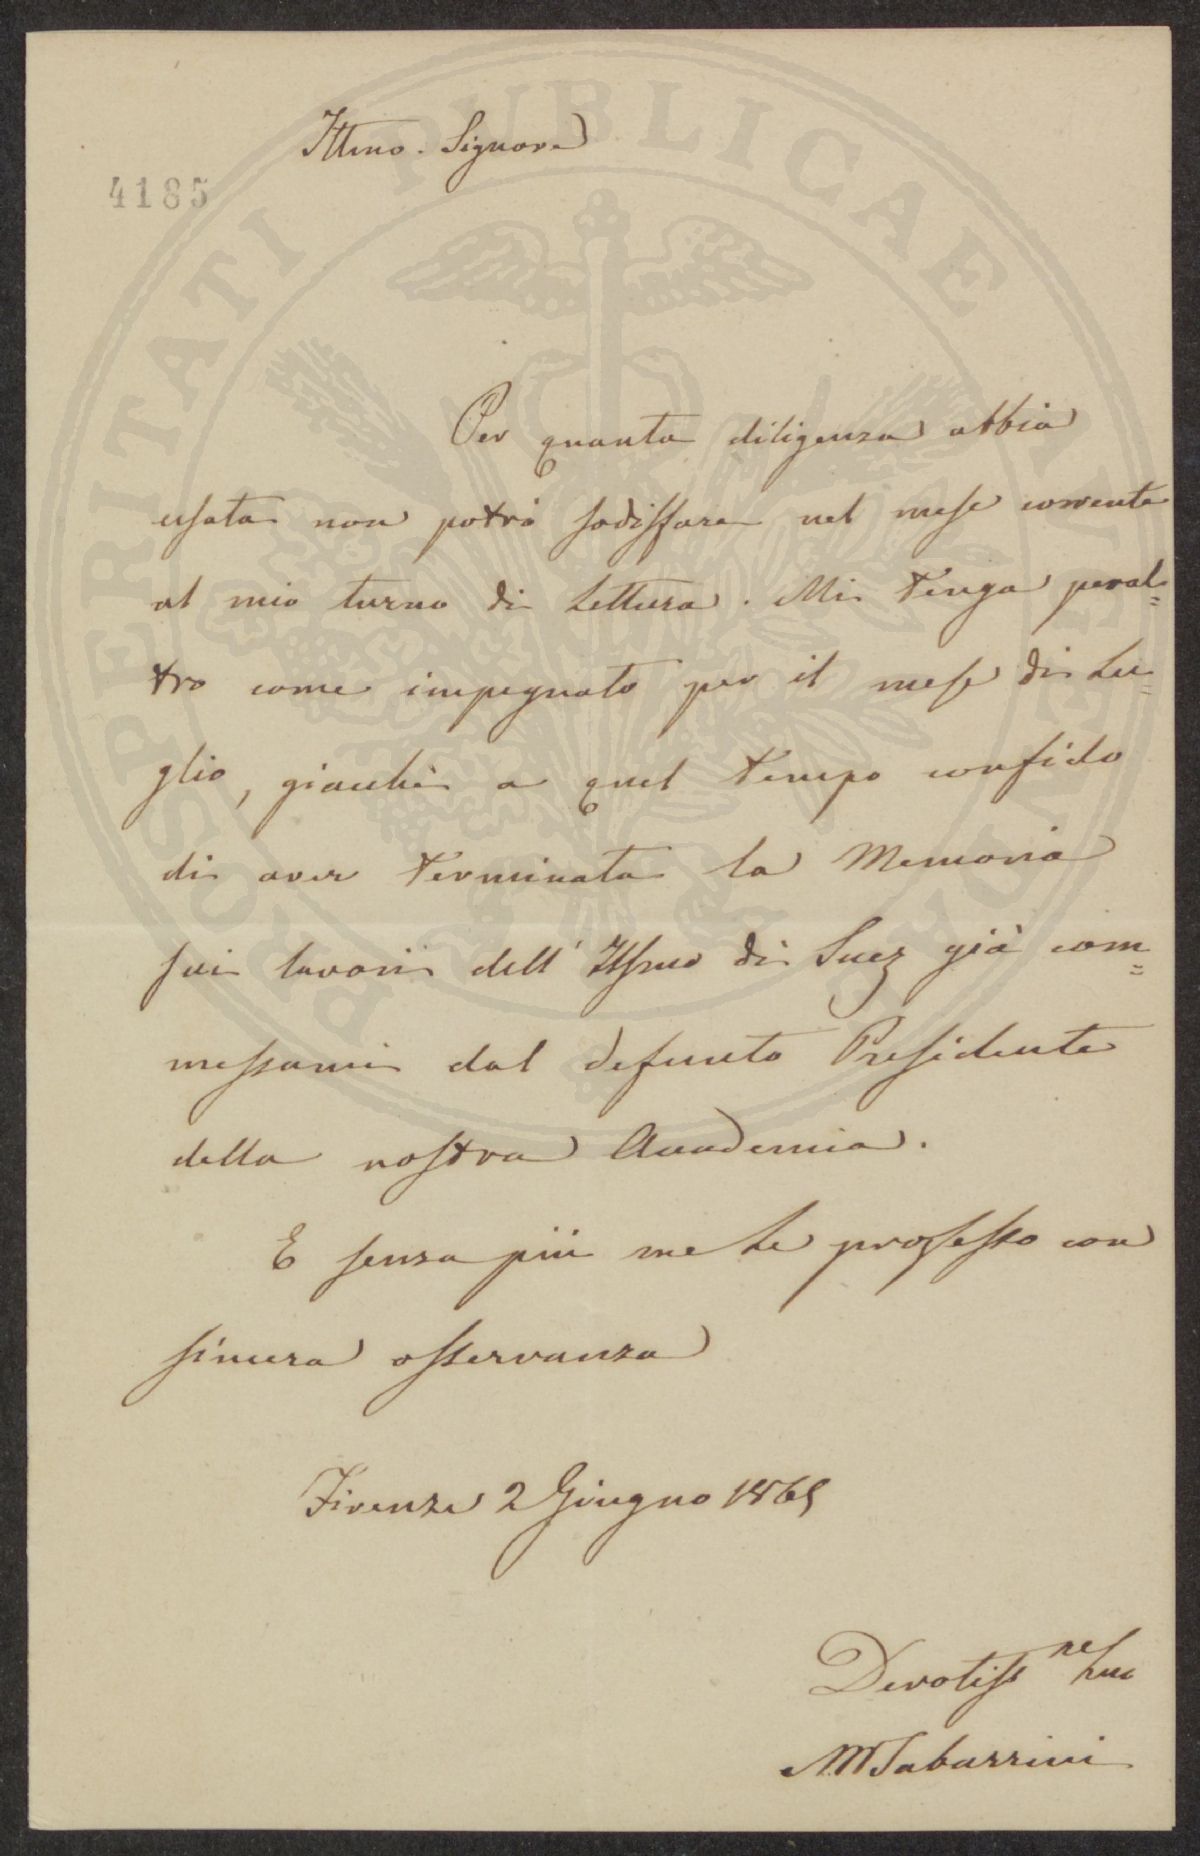 Illmo. Signore
4185
Per quanta diligenza abbia
usata non potrò sodisfare nel mese corrente
al mio turno di Lettura. Mi tenga peral=
tro come impegnato per il mese di Lu=
glio, giacchè a quel tempo confido
di aver terminata la Memoria
sui lavori dell' Istmo di Suez già com=
messami dal defunto Presidente
della nostra Accademia.
E senza più me Le professo con
sincera osservanza
Firenze 2 Giugno 1869
Devotiss mo Suo
M Tabarrini
PROSPERITATI PUBLICAE AUGENDAE